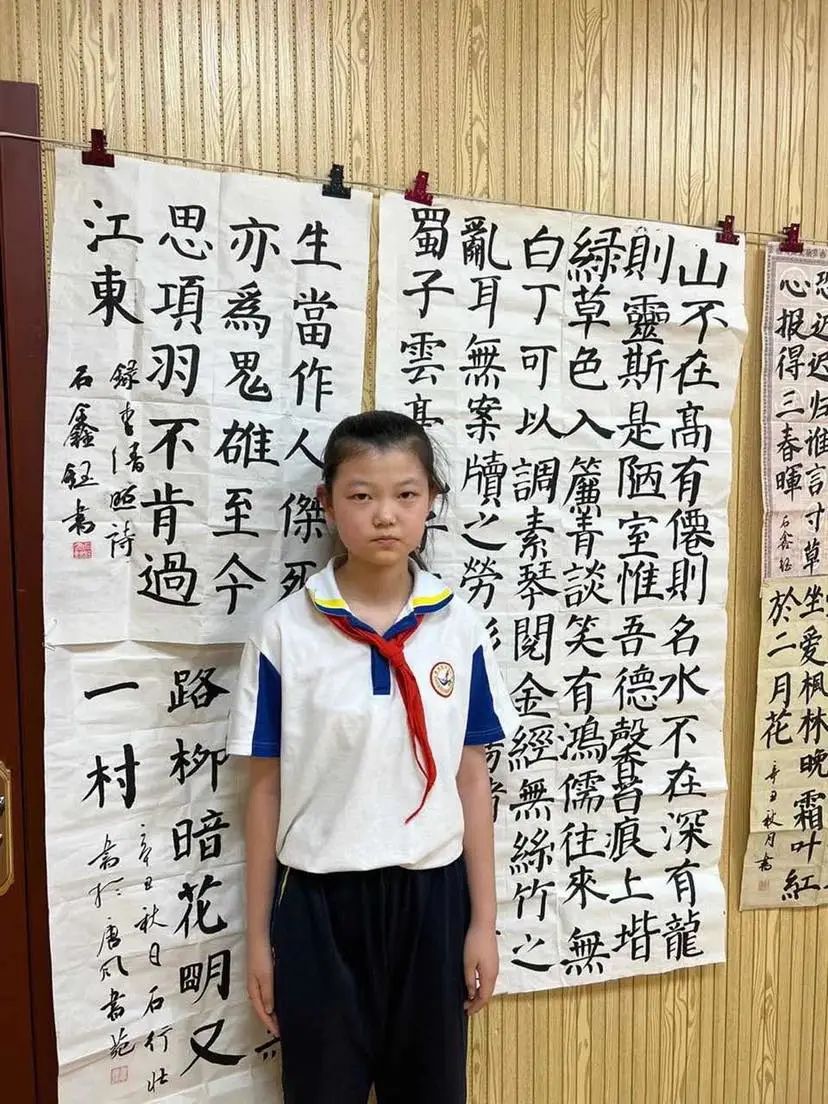 恐迟迟归谁言寸草
心报得三春暉
石鑫钰
坐爱枫林晚霜叶紅
於二月花
辛丑秋月書
山不在髙有僊則名水不在深有龍
則靈斯是陋室惟吾德馨苔痕上堦
綠草色入簾青談笑有鴻儒往來無
白丁可以調素琴閱金經無絲竹之
亂耳無案牘之勞形
蜀子雲亭
生當作人傑死
亦爲鬼雄至今
思項羽不肯過
江東
録李清照詩
石鑫鈺書
路柳暗花明又
一村
辛丑秋日石行壮
書於唐风書苑